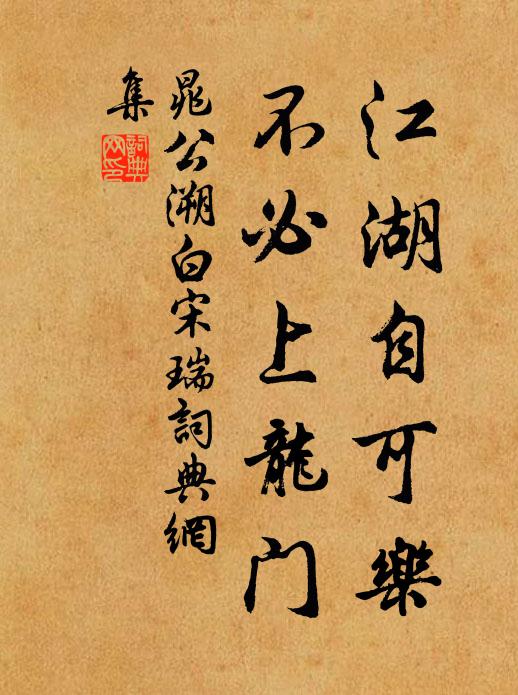 江湖自可樂
不必上龍门
晁公溯白宋瑞詞典網
集
詞典網印